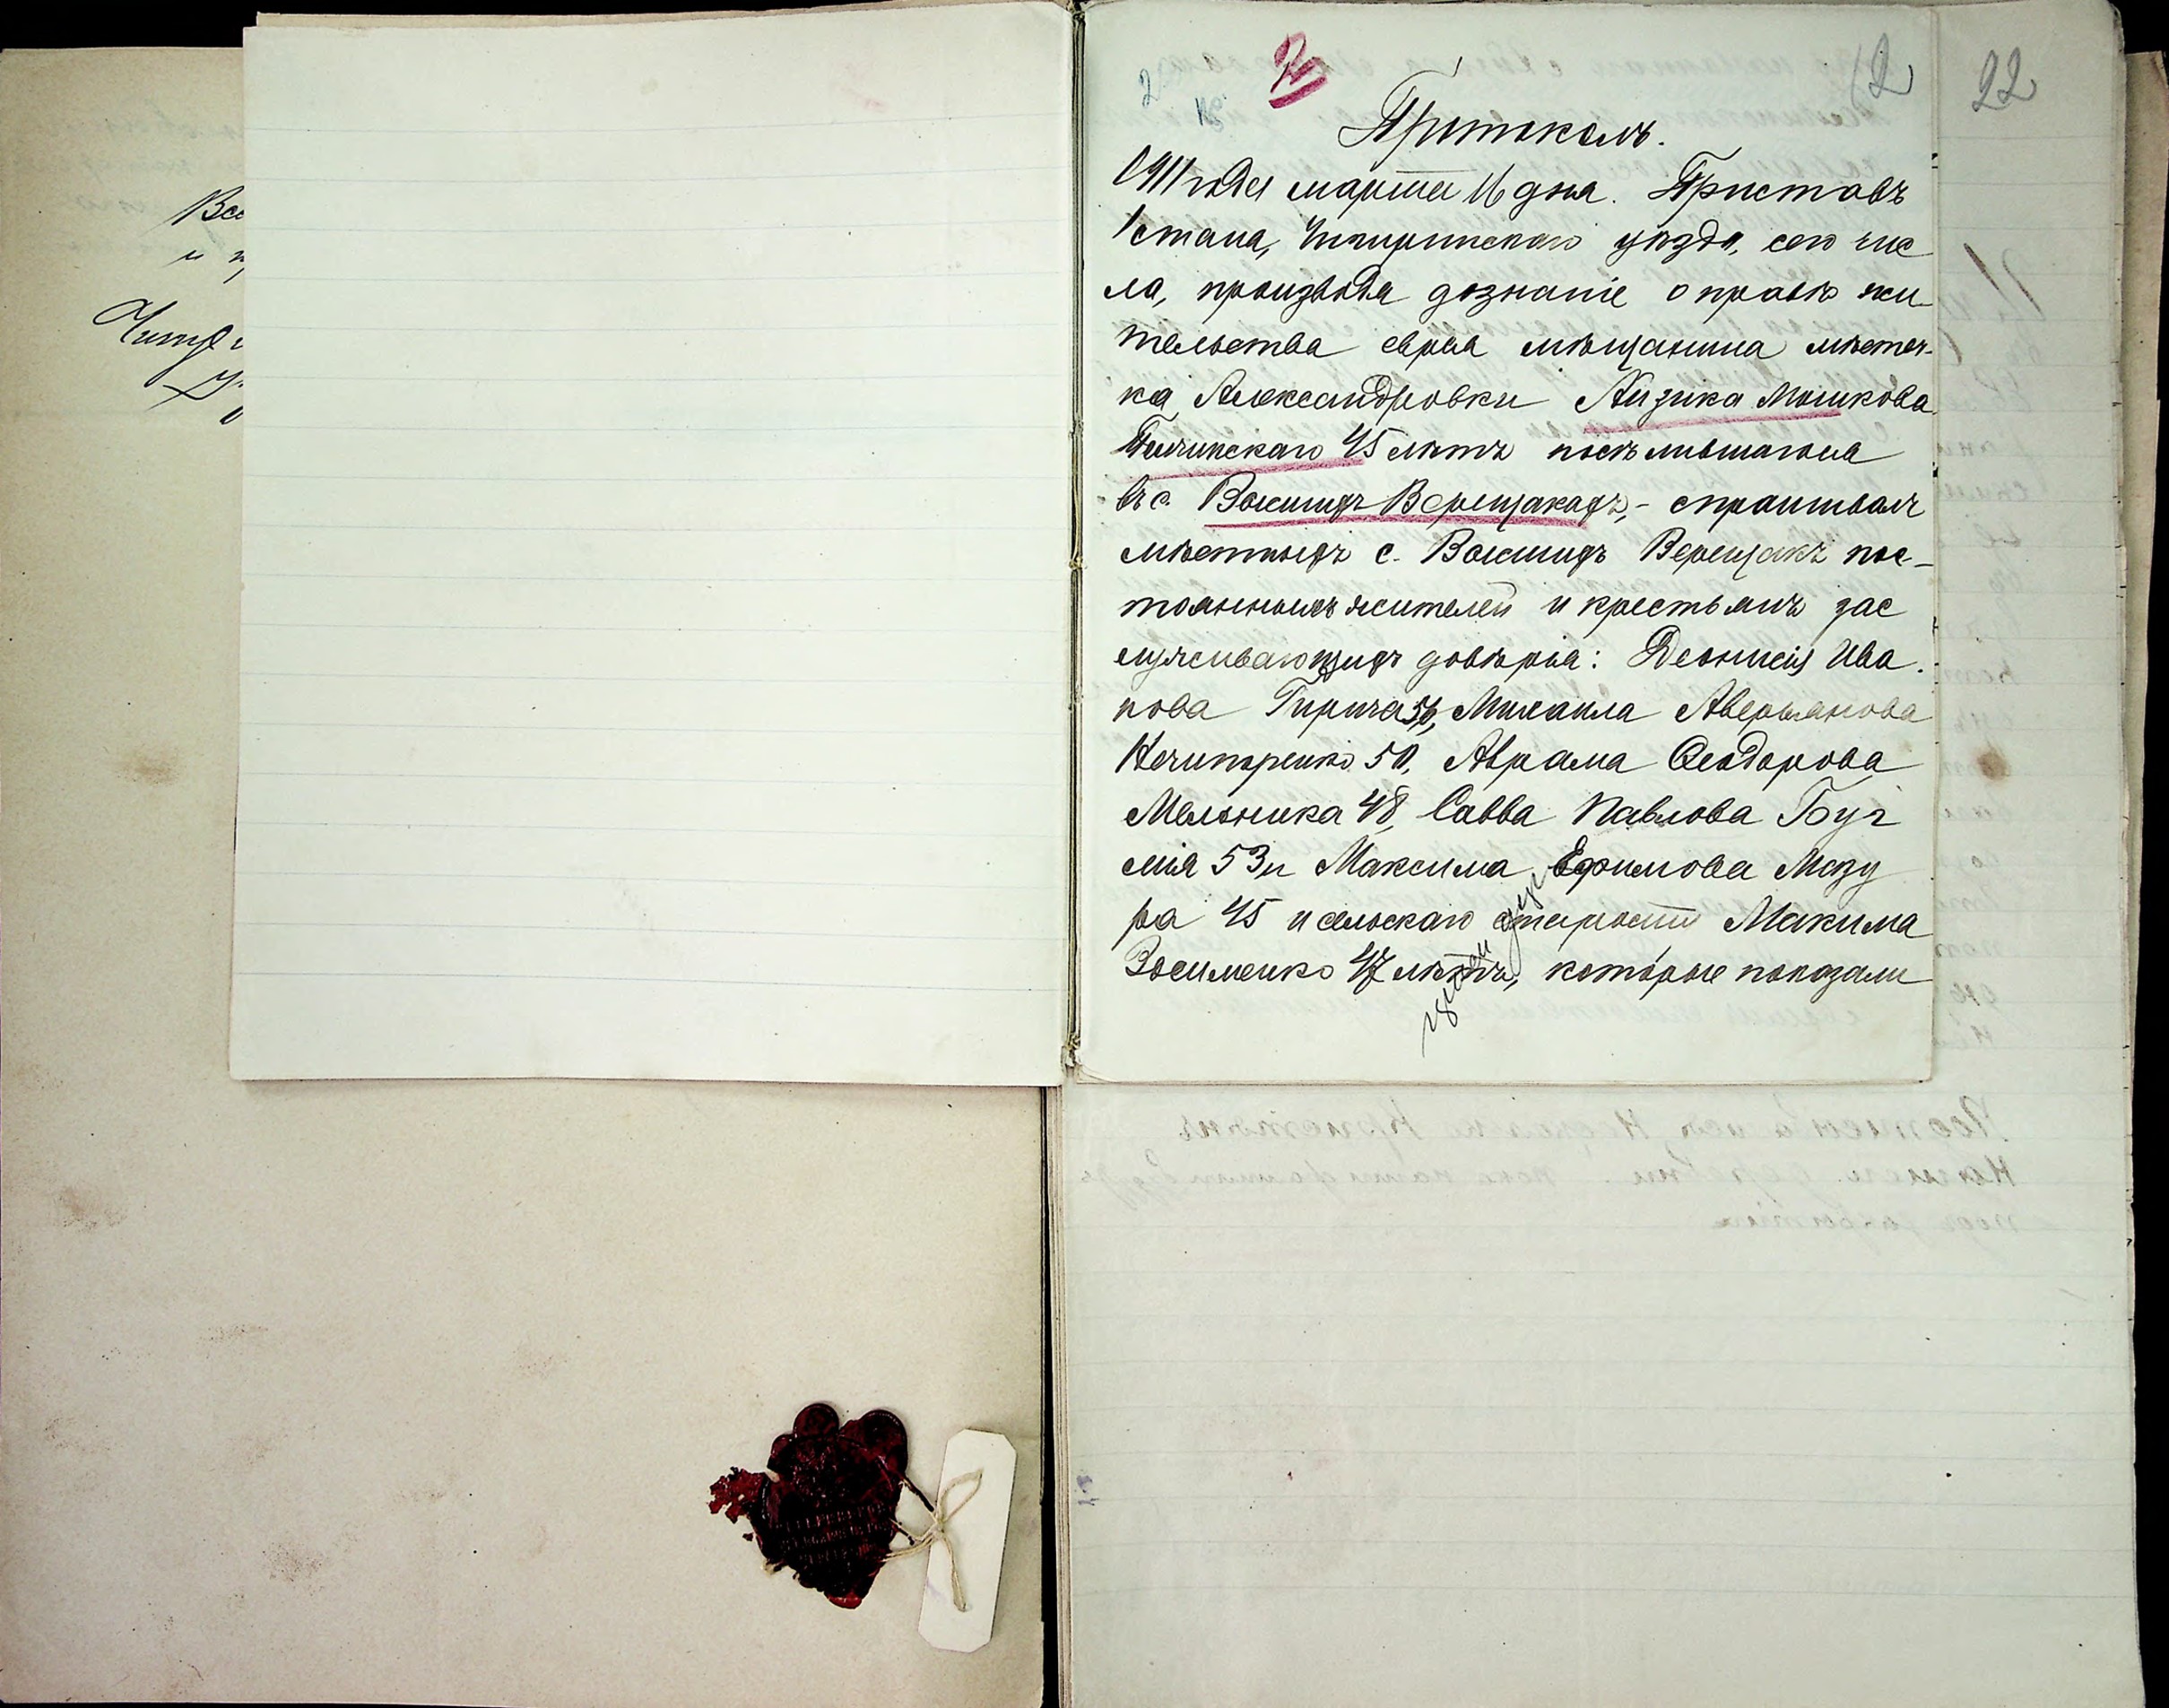 Все
и п
2
2
12
22
Протоколъ.
1911 года марта 16 дня. Приставъ
1 стана, Чигиринскаго уѣзда, сего чис
ла, производя дознаніе о правѣ жи
тельства еврея мѣщанина мѣстеч-
ка Александровки Айзика Мошкова
45 лѣтъ поселившагося
въ с. Вокшихъ Верещакахъ, - спрашивалъ
мѣстныхъ с. Верещакъ пос-
тоянныхъ жителей и крестьянъ зас
луживающихъ довѣрія: Деонисія Ива
нова Гирича 56, Михаила Аверьянова
Нечипоренко 50, Аврама Ѳеодорова
Мельника 48, Савва Павлова Буг
лія 53 и Максима Ефимова Мазу
ра 45 и сельскаго старосты Макима
Зосименко 47 лѣтъ, которые показали